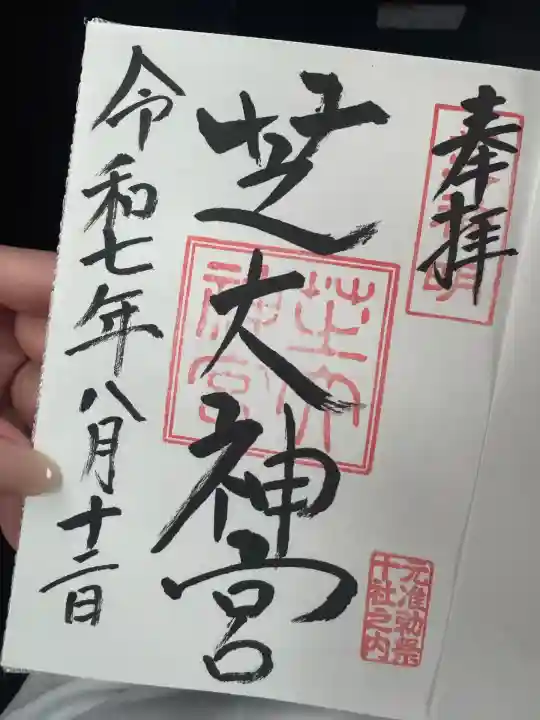 奉拝
芝大神宮
芝大
神宮
元准勅祭
十社之内
令和七年八月十二日